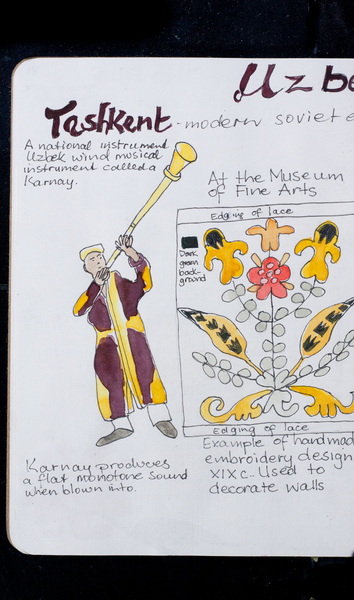 Uzbe
Tashkent - modern soviet e
A national instrument
Uzbek wind musical
instrument called a
Karnay.
At the Museum
of Fine Arts
Edging of lace
Dark
green
back-
ground
Edging of lace
Example of handmad
embroidery design
XIX c. Used to
decorate walls
Karnay produces
a flat monotone sound
when blown into.